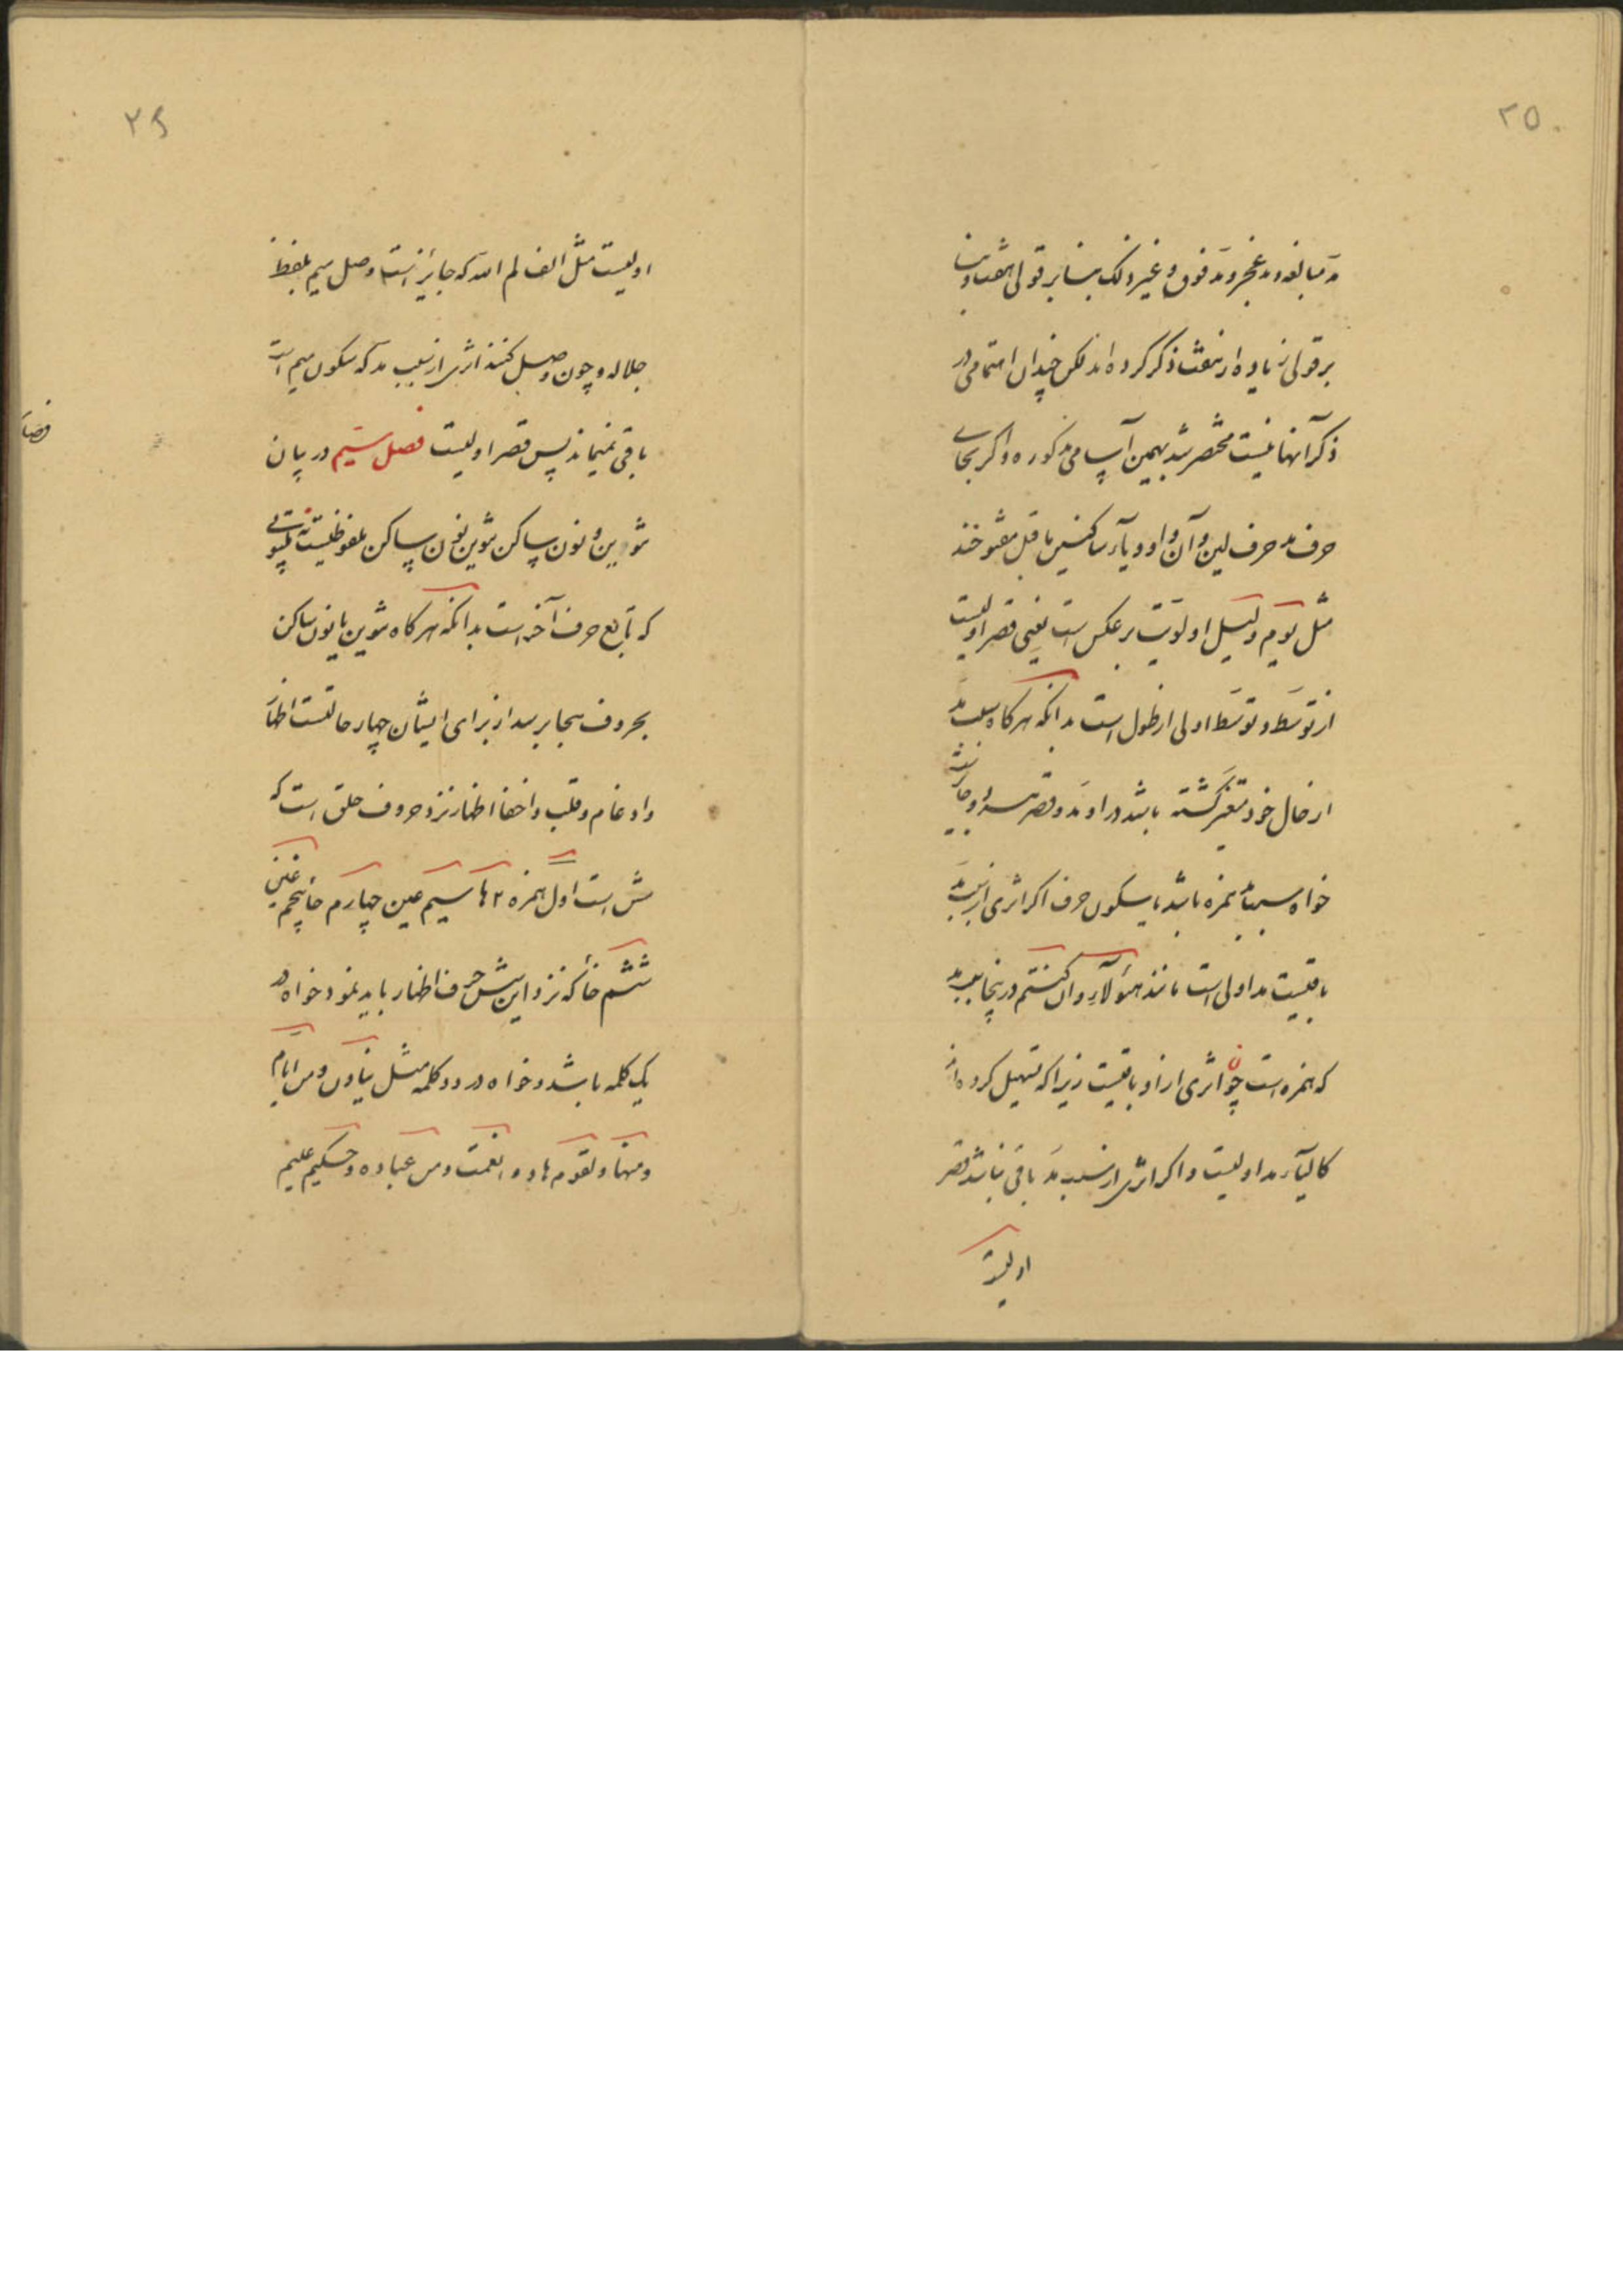 ۲۵
مد مبالغه و مد عجز و مد فرق و غیر ذلک بنا بر قولی هفتاد و بنا
بر قولی زیاده از هفت ذکر کرده اند لکن چندان اهتمامی در
ذکر آنها نیست مختصر شد بهمین اسامی مذکوره و اگر بجای
حرف مد حرف لین و آن واو و یاء ساکنین ماقبل مفتوحند
مثل یوم و لیل اولویت بر عکس است یعنی قصر اولیست
از توسط و توسط اولی از طول است بدانکه هرگاه سبب مد
از حال خود متغیر گشته باشد در او مد و قصر هر دو جایز
است
خواه سبب مد همزه باشد یا سکون حرف اگر اثری از سبب مد
باقیست مد اولی است مانند هؤلاء ان کنتم در اینجا سبب مد
که همزه است چون اثری از او باقیست زیرا که تسهیل کرده اند
کالیاء مد اولیست و اگر اثری از سبب مد باقی نباشد قصر
اولیست
۲۶
اولیست مثل الف لام الله که جایز است وصل میم بلفظ
جلاله و چون وصل کنند اثری از سبب مد که سکون میم است
باقی نمیماند پس قصر اولیست فصل سیم در بیان
تنوین و نون ساکن تنوین نون ساکن ملفوظیست نه مکتوبی
که تابع حرف آخر است بدانکه هرگاه تنوین یا نون ساکن
بحروف هجا برسد از برای ایشان چهار حالتست اظهار
و ادغام و قلب و اخفا اظهار نزد حروف حلق است که
شش است اول همزه ۲ ها سیم عین چهارم حا پنجم غین
ششم خا که نزد این شش حرف اظهار باید نمود خواه در
یک کلمه باشد و خواه در دو کلمه مثل ینأون و من ایام
و منها و لقوم هاد و انعمت و من عباده و حکیم علیم